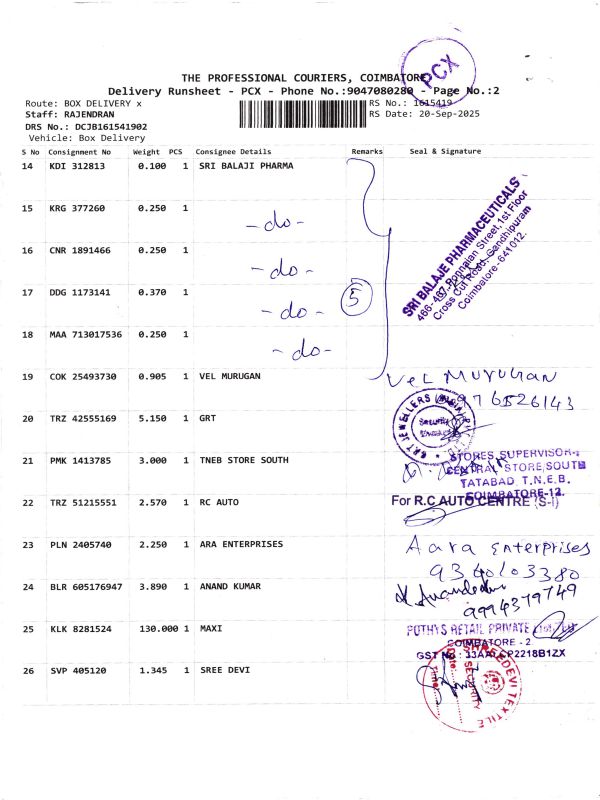 THE PROFESSIONAL COURIERS, COIMBATORE
PCX
Delivery Runsheet - PCX - Phone No.:9047080280 - Page No.:2
Route: BOX DELIVERY x
RS No.: 1615419
Staff: RAJENDRAN
RS Date: 20-Sep-2025
DRS No.: DCJB161541902
Vehicle: Box Delivery
S No Consignment No Weight PCS Consignee Details Remarks Seal & Signature
14 KDI 312813 0.100 1 SRI BALAJI PHARMA
15 KRG 377260 0.250 1
- do -
16 CNR 1891466 0.250 1
- do -
17 DDG 1173141 0.370 1
- do -
18 MAA 713017536 0.250 1
- do -
5
SRI BALAJE PHARMACEUTICALS
466-467, Ponnaian Street, 1st Floor
Cross Cut Road, Gandhipuram
Coimbatore - 641012.
19 COK 25493730 0.905 1 VEL MURUGAN
Vel Murugan
20 TRZ 42555169 5.150 1 GRT
GRT JEWELLERS
21 PMK 1413785 3.000 1 TNEB STORE SOUTH
STORES SUPERVISOR-I
CENTRAL STORE/SOUTH
TATABAD T.N.E.B.
COIMBATORE-12.
22 TRZ 51215551 2.570 1 RC AUTO
For R.C AUTO CENTRE (S-I)
23 PLN 2405740 2.250 1 ARA ENTERPRISES
Aara Enterprises
9340103380
24 BLR 605176947 3.890 1 ANAND KUMAR
9994379749
25 KLK 8281524 130.000 1 MAXI
POTHYS RETAIL PRIVATE LIMITED
COIMBATORE - 2
26 SVP 405120 1.345 1 SREE DEVI
SHREEDEVI TEXTILE
SECURITY
Date:
Time: